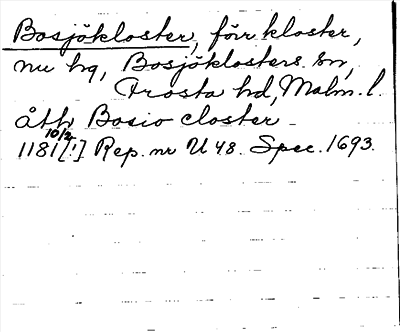 Bosjökloster, förr kloster,
nu hg, Bosjöklosters sn,
Frosta hd, Malm. l.
åth Bosio closter -
10/2
1181[!] Rep. nr U 48. Spec. 1693.